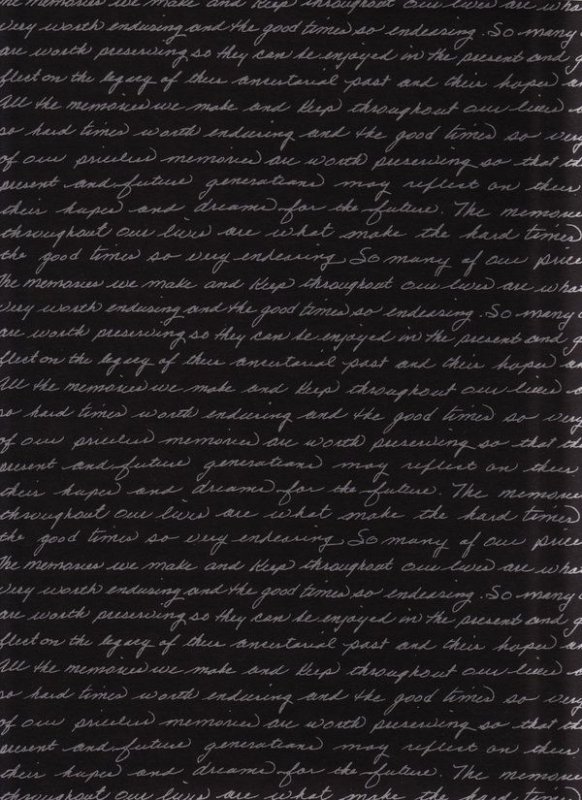 The memories we make and keep throughout our lives are wha
very worth enduring and the good times so endearing. So many
are worth preserving so they can be enjoyed in the present and g
flect on the legacy of their ancestorial past and their hopes a
All the memories we make and keep throughout our lives
so hard times worth enduring and the good times so very
of our priceless memories are worth preserving so that th
present and future generations may reflect on their
their hopes and dreams for the future. The memories
throughout our lives are what make the hard times
the good times so very endearing So many of our price
The memories we make and keep throughout our lives are wha
very worth enduring and the good times so endearing. So many
are worth preserving so they can be enjoyed in the present and g
flect on the legacy of their ancestorial past and their hopes a
All the memories we make and keep throughout our lives
so hard times worth enduring and the good times so very
of our priceless memories are worth preserving so that th
present and future generations may reflect on their
their hopes and dreams for the future. The memories
throughout our lives are what make the hard times
the good times so very endearing So many of our price
The memories we make and keep throughout our lives are wha
very worth enduring and the good times so endearing. So many
are worth preserving so they can be enjoyed in the present and g
flect on the legacy of their ancestorial past and their hopes a
All the memories we make and keep throughout our lives
so hard times worth enduring and the good times so very
of our priceless memories are worth preserving so that th
present and future generations may reflect on their
their hopes and dreams for the future. The memories
throughout our lives are what make the hard times